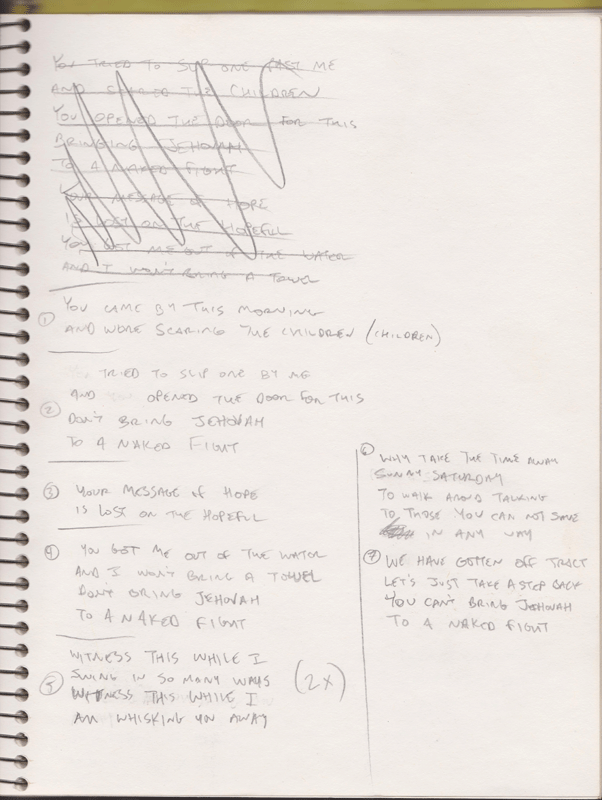 YOU TRIED TO SLIP ONE PAST ME
AND SCARED THE CHILDREN
YOU OPENED THE DOOR FOR THIS
BRINGING JEHOVAH
TO A NAKED FIGHT
YOUR MESSAGE OF HOPE
IS LOST ON THE HOPEFUL
YOU GOT ME OUT OF THE WATER
AND I WON'T BRING A TOWEL
① YOU CAME BY THIS MORNING
AND WORE SCARING THE CHILDREN (CHILDREN)
TRIED TO SLIP ONE BY ME
AND OPENED THE DOOR FOR THIS
② DON'T BRING JEHOVAH
TO A NAKED FIGHT
③ YOUR MESSAGE OF HOPE
IS LOST ON THE HOPEFUL
④ YOU GOT ME OUT OF THE WATER
AND I WON'T BRING A TOWEL
DON'T BRING JEHOVAH
TO A NAKED FIGHT
WITNESS THIS WHILE I
⑤ SWING IN SO MANY WAYS (2X)
WITNESS THIS WHILE I
AM WHISKING YOU AWAY
⑥ WHY TAKE THE TIME AWAY
SUNNY SATURDAY
TO WALK AROUND TALKING
TO THOSE YOU CAN NOT SAVE
IN ANY WAY
⑦ WE HAVE GOTTEN OFF TRACT
LET'S JUST TAKE A STEP BACK
YOU CAN'T BRING JEHOVAH
TO A NAKED FIGHT